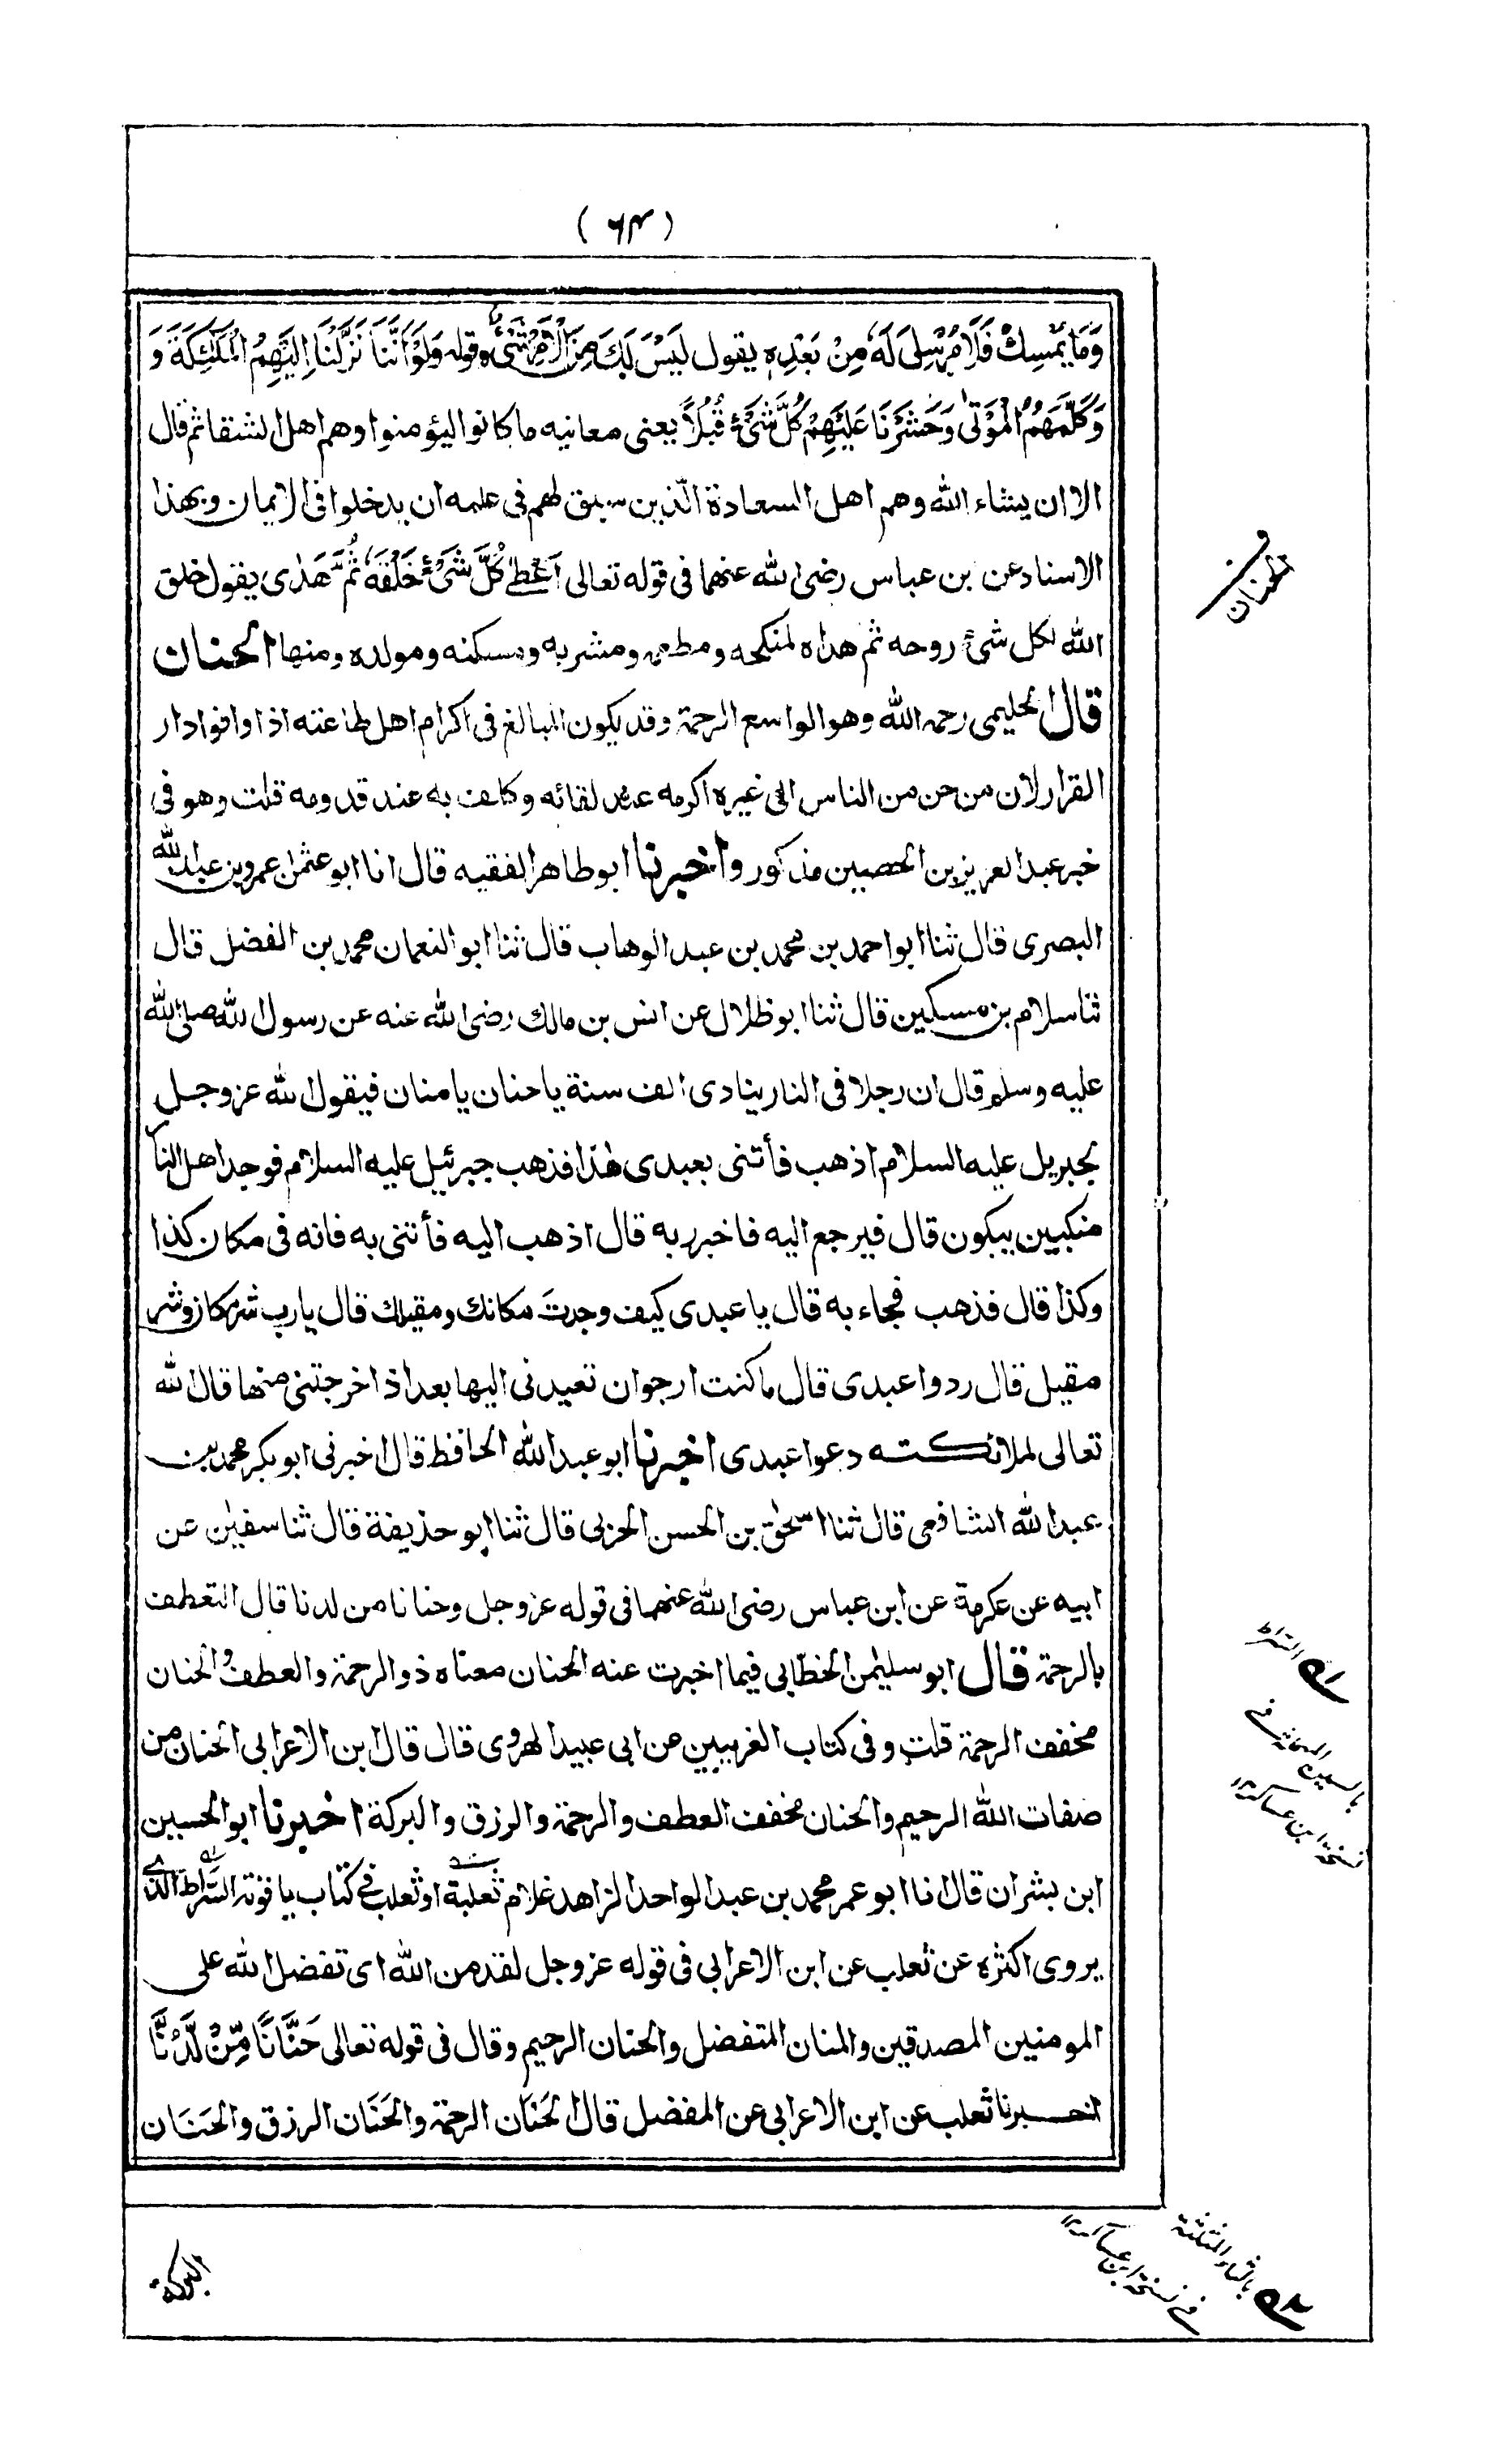 (۶۴)
وَمَا يُمْسِكْ فَلَا مُرْسِلَ لَهُ مِنْ بَعْدِهٖ يقول لَيْسَ لَكَ مِنَ الْاَمْرِ شَىْءٌ وقوله وَلَوْ اَنَّنَا نَزَّلْنَا اِلَيْهِمُ الْمَلٰئِكَةَ وَ
وَكَلَّمَهُمُ الْمَوْتٰى وَحَشَرْنَا عَلَيْهِمْ كُلَّ شَىْءٍ قُبُلًا يعنى معانيه ما كانوا اليؤمنوا وهم اهل الشقا ثم قال
الا ان يشاء الله وهم اهل السعادة الّذين سبق لهم فى علمه ان يدخلوا فى الايمان وبهذا
الاسناد عن بن عباس رضى الله عنهما فى قوله تعالى اَعْطٰى كُلَّ شَىْءٍ خَلْقَهٗ ثُمَّ هَدٰى يقول خلق
الحنان
الله لكل شئ روحه ثم هداه لمنكحه ومطعمه ومشربه ومسكنه ومولده ومنها الحنان
قال الحليمى رحمه الله وهو الواسع الرحمة وقد يكون المبالغ فى اكرام اهل طاعته اذا وافوا دار
القرار لان من حن من الناس الى غيره اكرمه عند لقائه وكلف به عند قدومه قلت وهو فى
خبر عبد العزيز بن الحصين مذكور واخبرنا ابو طاهر الفقيه قال انا ابو عثمٰن عمرو بن عبد الله
البصرى قال ثنا ابو احمد بن محمد بن عبد الوهاب قال ثنا ابو النعمان محمد بن الفضل قال
ثنا سلام بن مسكين قال ثنا ابو ظلال عن انس بن مالك رضى الله عنه عن رسول الله صلى الله
عليه وسلم قال ان رجلا فى النار ينادى الف سنة يا حنان يا منان فيقول الله عز وجل
لجبريل عليه السلام اذهب فأتنى بعبدى هٰذا فذهب جبرئيل عليه السلام فوجد اهل النار
منكبين يبكون قال فيرجع اليه فاخبر به قال اذهب اليه فأتنى به فانه فى مكان كذا
وكذا قال فذهب فجاء به قال يا عبدى كيف وجدتَ مكانك ومقيلك قال يا رب شر مكان وشر
مقيل قال ردوا عبدى قال ما كنت ارجو ان تعيدنى اليها بعد اذ اخرجتنى منها قال الله
تعالى لملائكته دعوا عبدى اخبرنا ابو عبد الله الحافظ قال اخبرنى ابو بكر محمد بن
عبد الله الشافعى قال ثنا اسحٰق بن الحسن الحربى قال ثنا ابو حذيفة قال ثنا سفيٰن عن
ابيه عن عكرمة عن ابن عباس رضى الله عنهما فى قوله عز وجل وحنانا من لدنا قال التعطف
بالرحمة قال ابو سليمٰن الخطّابى فيما اخبرت عنه الحنان معناه ذو الرحمة والعطف والحنان
مخفف الرحمة قلت وفى كتاب الغريبين عن ابى عبيد الهروى قال قال ابن الاعرابى الحنان من
صفات الله الرحيم والحنان مخفف العطف والرحمة والرزق والبركة اخبرنا ابو الحسين
ابن بشران قال انا ابو عمر محمد بن عبد الواحد الزاهد غلام ثعلبة او ثعلب فى كتاب ياقوتة السَّراط الذى
يروى اكثره عن ثعلب عن ابن الاعرابى فى قوله عز وجل لقد من الله اى تفضل الله على
المومنين المصدقين والمنان المتفضل والحنان الرحيم وقال فى قوله تعالى حَنَّانًا مِّنْ لَّدُنَّا
اخبرنا ثعلب عن ابن الاعرابى عن المفضل قال الحَنَان الرحمة والحَنَان الرزق والحَنَان
السّراط
بالسين فى
نسخة ابن عساكر ۱۲
بالثاء المثلثة
فى نسخة ابن عساكر ۱۲
البركة